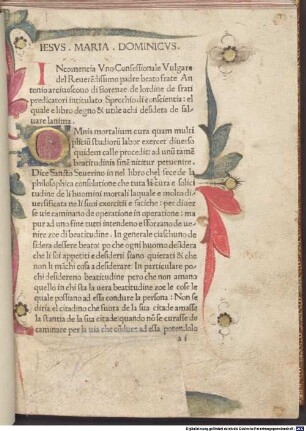 IESVS . MARIA . DOMINICVS.
INcomencia Vno Confessionale Vulgare
del Reuerẽdissimo padre beato frate An
tonio arciuescouo di fiorenze de lordine de frati
predicatori intitulato Specchio di conscientia : el
quale e libro degno & utile a chi desidera de sal
uare lanima.
OMnis mortalium cura quam multi
pliciũ studiorũ labor exercet diuerso
quidem calle procedit: ad unũ tamẽ
beatitudinis finẽ nititur peruenire.
Dice Sancto Seuerino in nel libro che
philosophica consolatione che tuta la cura e solici
tudine de li huomini mortali laquale e molto di
uersificata ne li suoi exercitii e fatiche : per diuer
se uie caminano de operatione in operatione : ma
pur ad uno fine tutti intendeno e sforzano de ue
nire zoe di beatitudine . In generale ciaschuno de
sidera dessere beato: po che ogni huomo desidera
che li soi appetiti e desiderii siano quietati & che
non li mãchi cosa a desiderare: In particulare po
chi desidereno beatitudine pero che non amano
quello in chi sta la uera beatitudine zoe le cose le
quale possiano ad essa condure la persona : Non se
diria el citadino che fuora de la sua citade amasse
la stantia de la sua citade: quando nõ se curasse de
caminare per la uia che cõduce ad essa potendolo
a i